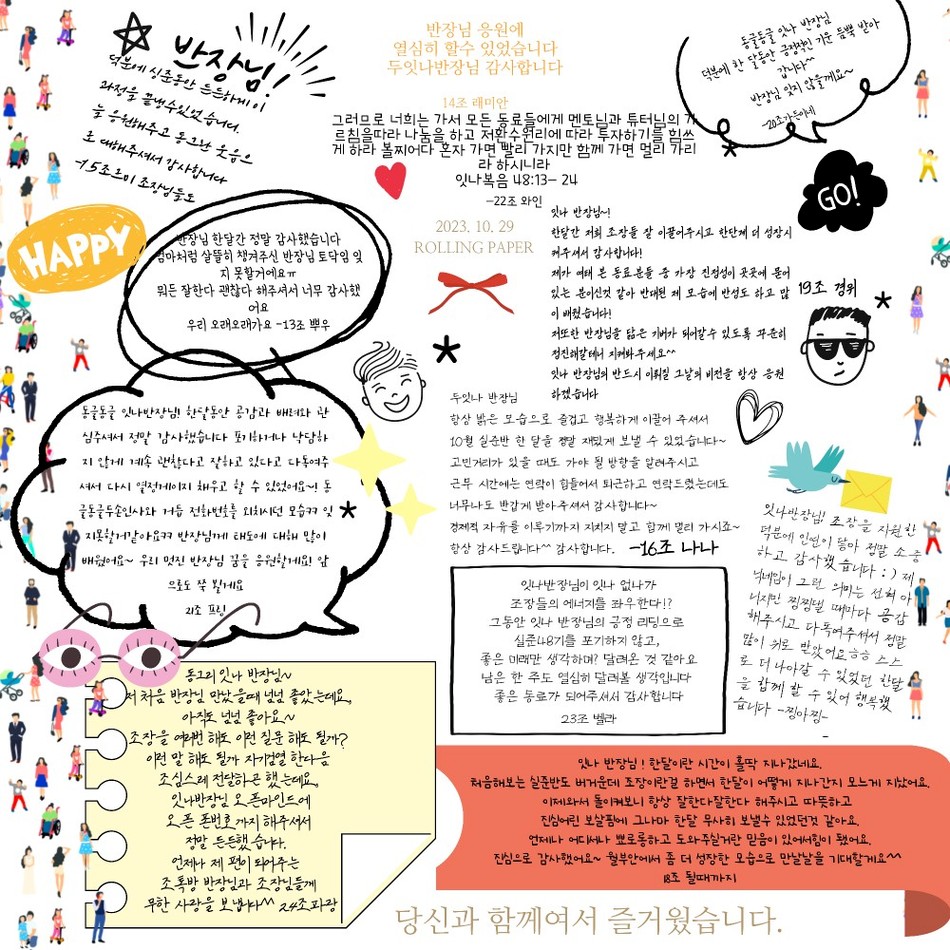 반장님!
덕분에 실준동안 든든하게 이
과정을 끝낼수있었습니다.
늘 응원해주고 동그란 웃음으
로 대해주셔서 감사합니다
-15조르미 조장님들도
반장님 응원에
열심히 할수 있었습니다
두잇나반장님 감사합니다
14조 래미안
그러므로 너희는 가서 모든 동료들에게 멘토님과 튜터님의 가
르침을따라 나눔을 하고 저환수원리에 따라 투자하기를 힘쓰
게 하라 볼찌어다 혼자 가면 빨리 가지만 함께 가면 멀리 가리
라 하시니라
잇나복음 48:13- 24
-22조 와인
동글동글 잇나 반장님
덕분에 한 달동안 긍정적인 기운 듬뿍 받아
갑니다~
반장님 잊지 않을게요~
-20조가든이네
GO!
HAPPY
반장님 한달간 정말 감사했습니다
엄마처럼 살뜰히 챙겨주신 반장님 토닥임 잊
지 못할거에요ㅠ
뭐든 잘한다 괜찮다 해주셔서 너무 감사했
어요
우리 오래오래가요 -13조 뿌우
2023. 10. 29
ROLLING PAPER
잇나 반장님~!
한달간 저희 조장들 잘 이끌어주시고 한단계 더 성장시
켜주셔서 감사합니다!
제가 여태 본 동료분들 중 가장 진정성이 곳곳에 묻어
있는 분이신것 같아 반대된 제 모습에 반성도 하고 많
이 배웠습니다!
저또한 반장님을 닮은 기버가 되어갈수 있도록 꾸준히
정진해갈테니 지켜봐주세요^^
잇나 반장님의 반드시 이뤄질 그날의 비전을 항상 응원
하겠습니다
19조 경위
동글동글 잇나반장님! 한달동안 공감과 배려와 관
심주셔서 정말 감사했습니다 포기하거나 낙담하
지 않게 계속 괜찮다고 잘하고 있다고 다독여주
셔서 다시 열정게이지 채우고 할 수 있었어요~! 동
글동글두손인사와 거듭 전화번호를 외치시던 모습ㅋㅋ 잊
지못할거같아요ㅋㅋ 반장님께 태도에 대해 많이
배웠어요~ 우리 멋진 반장님 꿈을 응원할게요! 앞
으로도 쭉 뵐게요
21조 프링
두잇나 반장님
항상 밝은 모습으로 즐겁고 행복하게 이끌어 주셔서
10월 실준반 한 달을 정말 재밌게 보낼 수 있었습니다~
고민거리가 있을 때도 가야 될 방향을 알려주시고
근무 시간에는 연락이 힘들어서 퇴근하고 연락드렸는데도
너무나도 반갑게 받아주셔서 감사합니다~
경제적 자유를 이루기까지 지치지 말고 함께 멀리 가시죠~
항상 감사드립니다^^ 감사합니다. -16조 나나
잇나반장님! 조장을 지원한
덕분에 인연이 닿아 정말 소중
하고 감사했습니다 :) 제
닉네임이 그런 의미는 전혀 아
니지만 찡찡댈 때마다 공감
해주시고 다독여주셔서 정말
많이 위로 받았어요ㅎㅎ 스스
로 더 나아갈 수 있었던 한달
을 함께 할 수 있어 행복했
습니다 -찡아찡-
잇나반장님이 잇나 없나가
조장들의 에너지를 좌우한다!?
그동안 잇나 반장님의 긍정 리딩으로
실준48기를 포기하지 않고,
좋은 미래만 생각하며? 달려온 것 같아요
남은 한 주도 열심히 달려볼 생각입니다
좋은 동료가 되어주셔서 감사합니다
23조 벨라
동그리 잇나 반장님~
저 처음 반장님 만났을때 넘넘 좋았는데요,
아직도 넘넘 좋아요~
조장을 여러번 해도 이런 질문 해도 될까?
이런 말 해도 될까 자기검열 한다음
조심스레 전달하곤 했는데요,
잇나반장님 오픈마인드에
오픈 폰번호까지 해주셔서
정말 든든했습니다.
언제나 제 편이 되어주는
조톡방 반장님과 조장님들께
무한 사랑을 보냅니다^^ 24조파랑
잇나 반장님! 한달이란 시간이 훌딱 지나갔네요.
처음해보는 실준반도 버거운데 조장이란걸 하면서 한달이 어떻게 지나간지 모르게 지났어요.
이제와서 돌이켜보니 항상 잘한다잘한다 해주시고 따뜻하고
진심어린 보살핌에 그나마 한달 무사히 보낼수 있었던것 같아요.
언제나 어디서나 뽀로롱하고 도와주실거란 믿음이 있어서힘이 됐어요.
진심으로 감사했어요~ 월부안에서 좀 더 성장한 모습으로 만날날을 기대할게요^^
18조 될때까지
당신과 함께여서 즐거웠습니다.